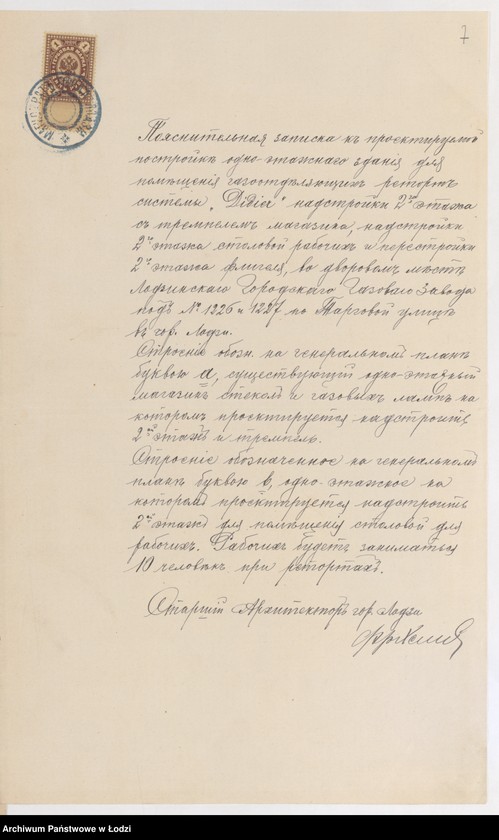 7
Пояснительная записка къ проектируемой
постройкѣ одно-этажнаго зданія для
помѣщенія газоотдѣляющихъ ретортъ
системы „Didier" надстройки 2го этажа
съ тремпелемъ магазина, надстройки
2го этажа столовой рабочихъ и перестройки
2го этажа флигеля, во дворовомъ мѣстѣ
Лодзинскаго Городскаго Газоваго Завода
подъ № 1226 и 1227 по Тарговой улицѣ
въ гор. Лодзи.
Строеніе обозн. на генеральномъ планѣ
буквою а, существующій одно-этажный
магазинъ стеколъ и газовыхъ лампъ на
которомъ проектируется надстроить
2ой этажъ и тремпель.
Строеніе обозначенное на генеральномъ
планѣ буквою в, одно-этажное на
которомъ проектируется надстроить
2ой этажъ для помѣщенія столовой для
рабочихъ. Рабочихъ будетъ заниматься
10 человѣкъ при ретортахъ.
Старшій Архитекторъ гор. Лодзи
Archiwum Państwowe w Łodzi